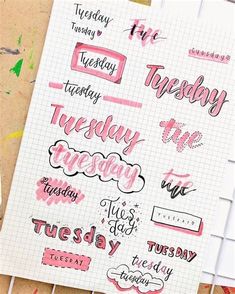 Tuesday
Tuesday
tue
TUESDAY
Tuesday
Tuesday
Tuesday
Tuesday
tue
Tuesday
Tuesday
tue
Tues
day
TUESDAY
Tuesday
TUESDAY
TUESDAY
TUESDAY
Tuesday